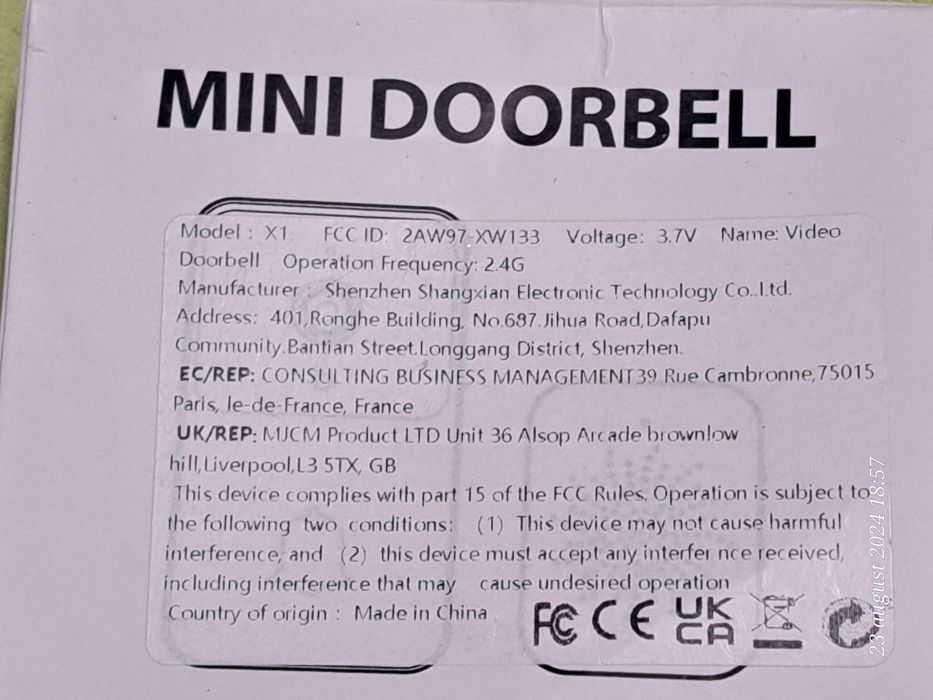 MINI DOORBELL
Model : X1 FCC ID: 2AW97-XW133 Voltage: 3.7V Name: Video
Doorbell Operation Frequency: 2.4G
Manufacturer : Shenzhen Shangxian Electronic Technology Co.,Ltd.
Address: 401,Ronghe Building, No.687.Jihua Road,Dafapu
Community.Bantian Street.Longgang District, Shenzhen.
EC/REP: CONSULTING BUSINESS MANAGEMENT39 Rue Cambronne,75015
Paris, le-de-France, France
UK/REP: MJCM Product LTD Unit 36 Alsop Arcade brownlow
hill,Liverpool,L3 5TX, GB
This device complies with part 15 of the FCC Rules. Operation is subject to
the following two conditions: (1) This device may not cause harmful
interference, and (2) this device must accept any interfer nce received,
including interference that may cause undesired operation
Country of origin : Made in China
FC CE UK
CA
23 august 2024 18:57